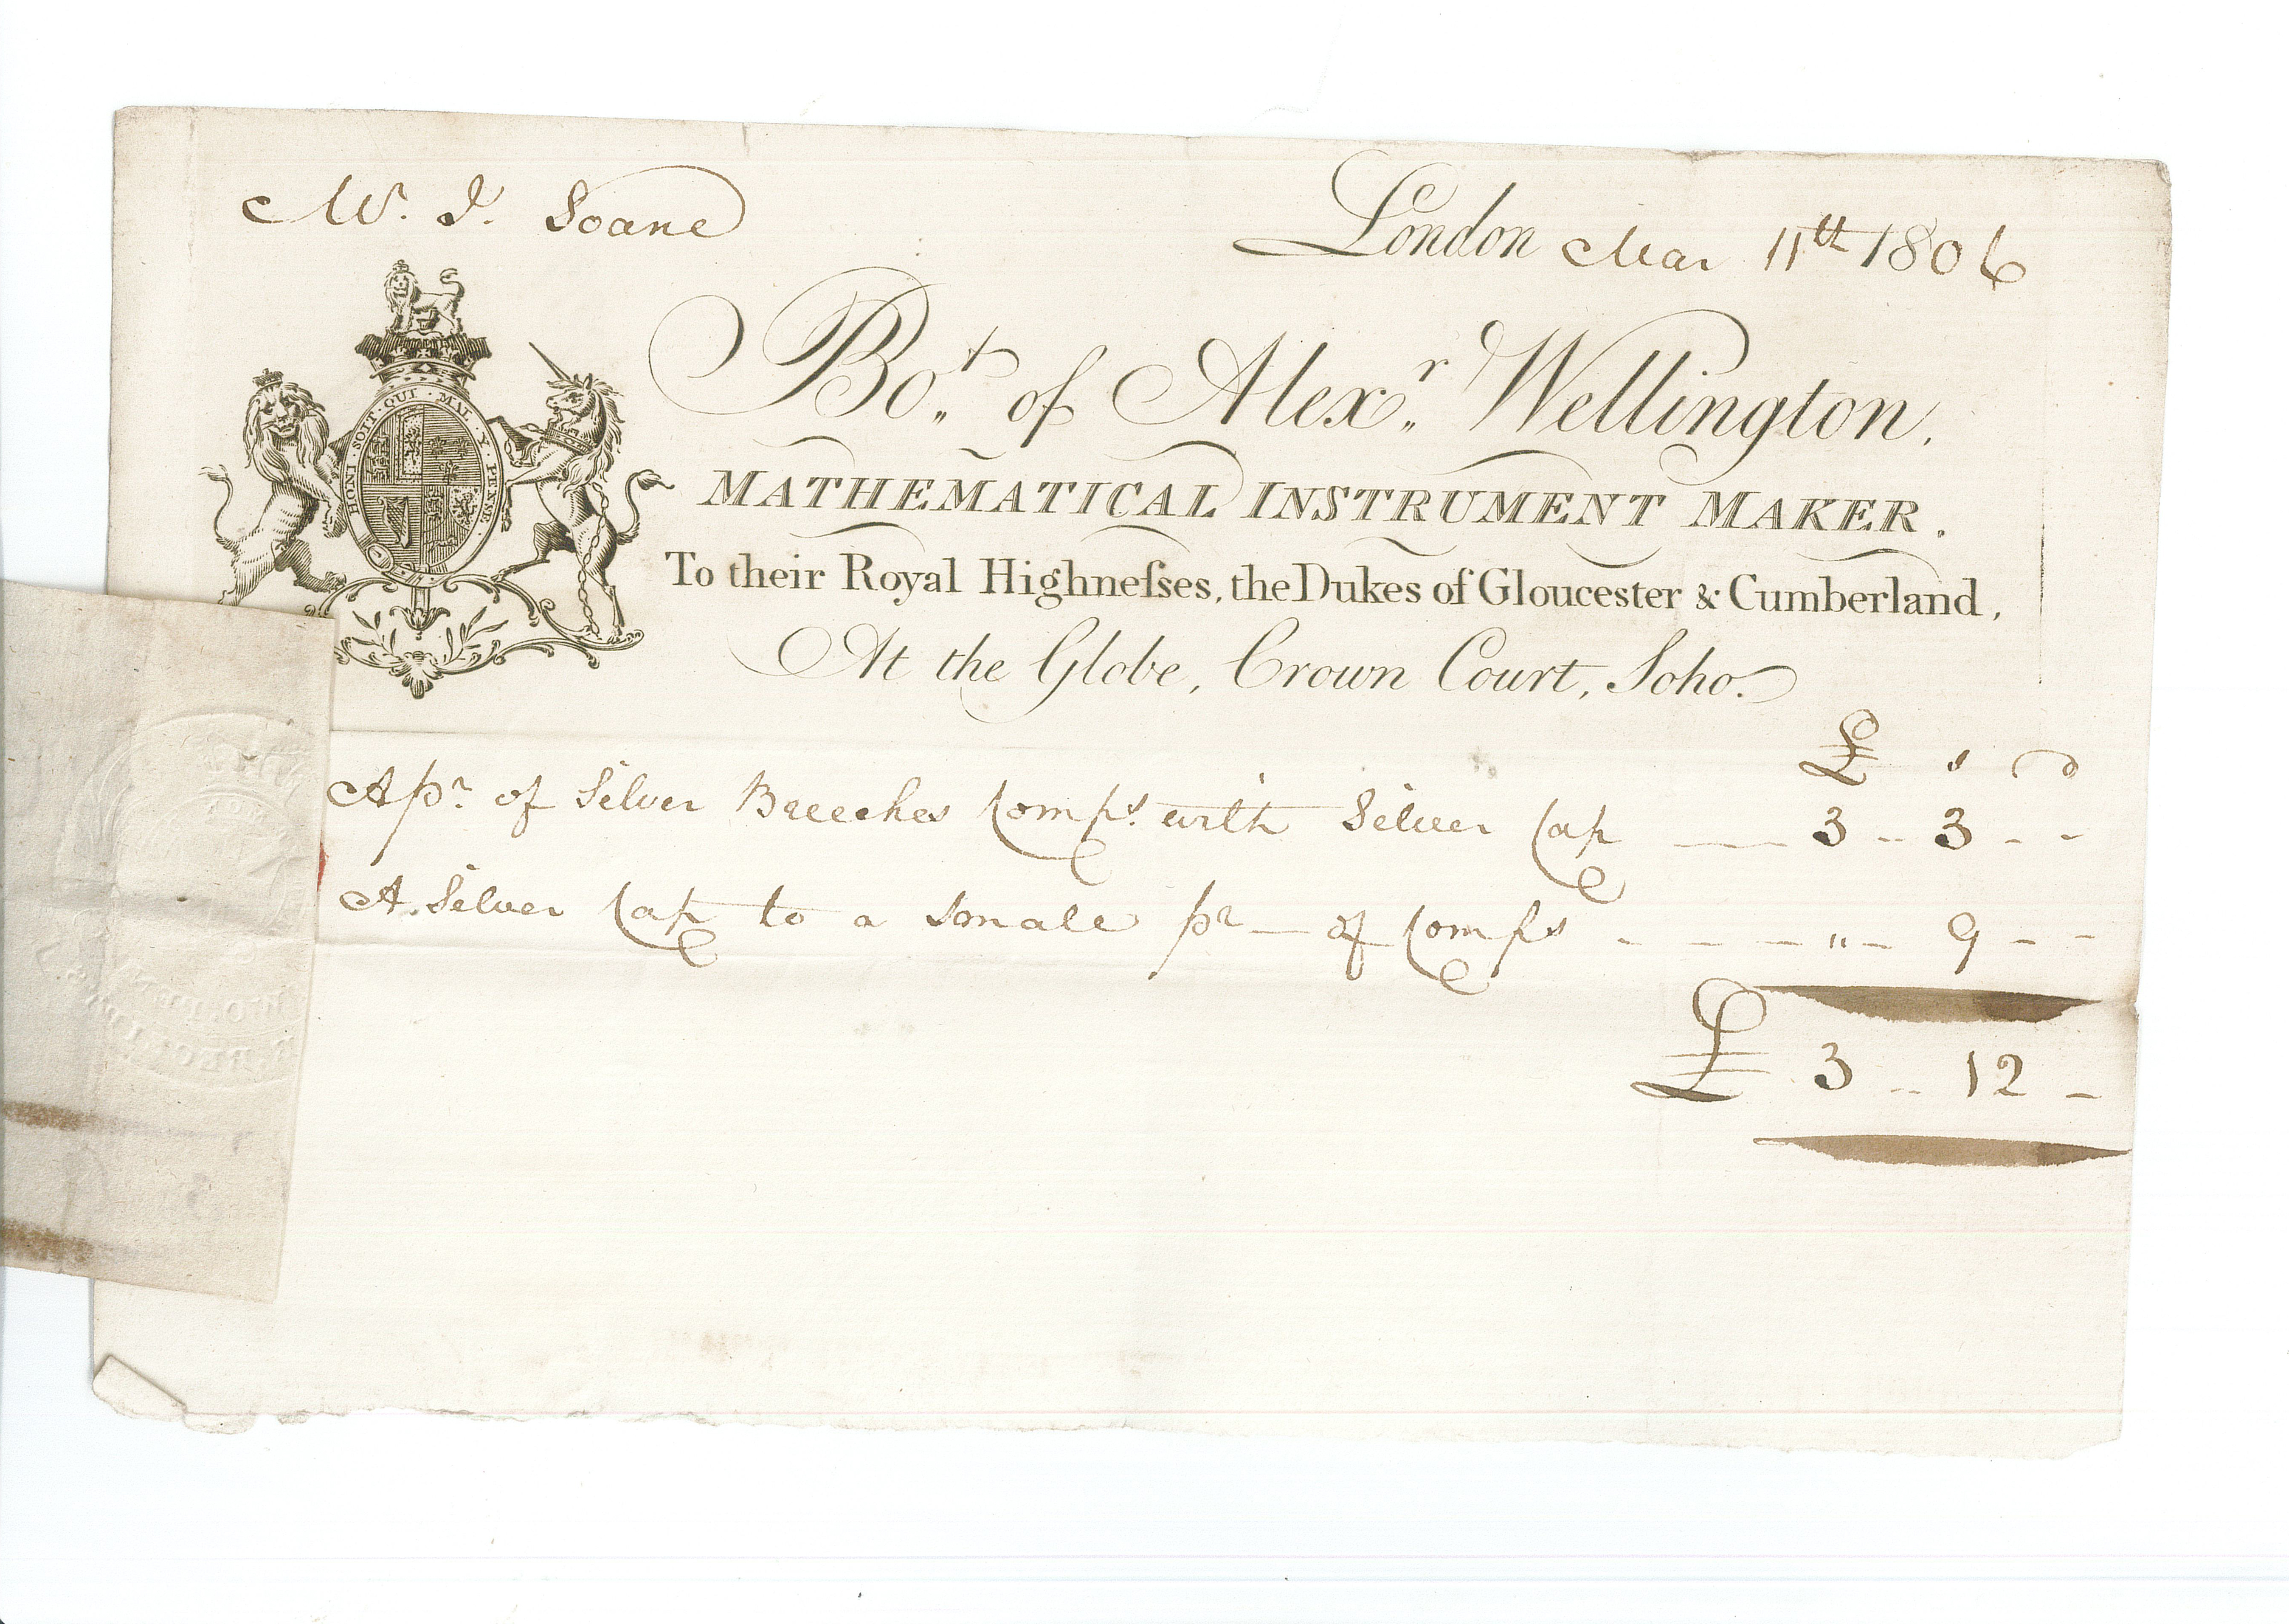 Mr. J. Soane
London Mar 11th 1806
HONI · SOIT · QUI · MAL · Y · PENSE
Bot. of Alexr. Wellington.
MATHEMATICAL INSTRUMENT MAKER.
To their Royal Highneſses, the Dukes of Gloucester & Cumberland,
At the Globe, Crown Court, Soho.
£ s d
A pr. of Silver Breeches Comps. with Silver Cap — 3 - 3 - -
A Silver Cap to a Smale pr — of Comps - - - - " - 9 - -
£ 3 - 12 -